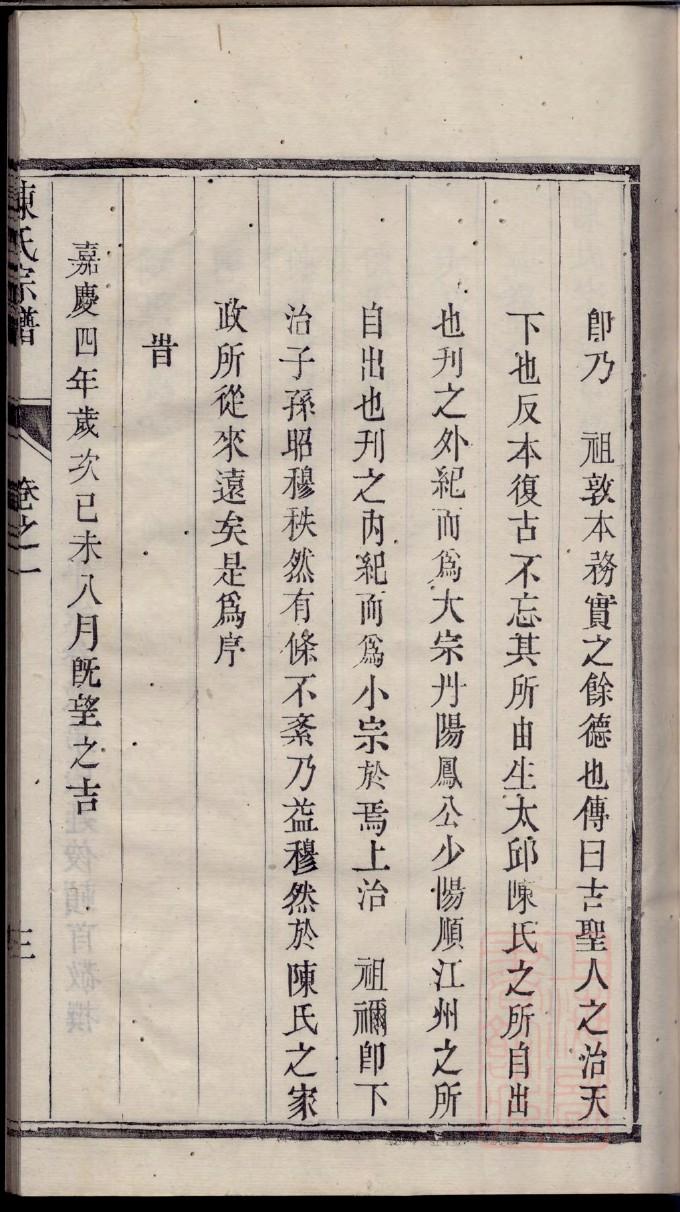 卽乃　祖敦本務實之餘德也傳曰古聖人之治天
下也反本復古不忘其所由生太邱陳氏之所自出
也刋之外紀而爲大宗丹陽鳳公少陽順江州之所
自出也刋之內紀而爲小宗於焉上治　祖禰卽下
治子孫昭穆秩然有條不紊乃益穆然於陳氏之家
政所從來遠矣是爲序
旹
嘉慶四年歲次己未八月旣望之吉
陳氏宗譜　卷之一　三